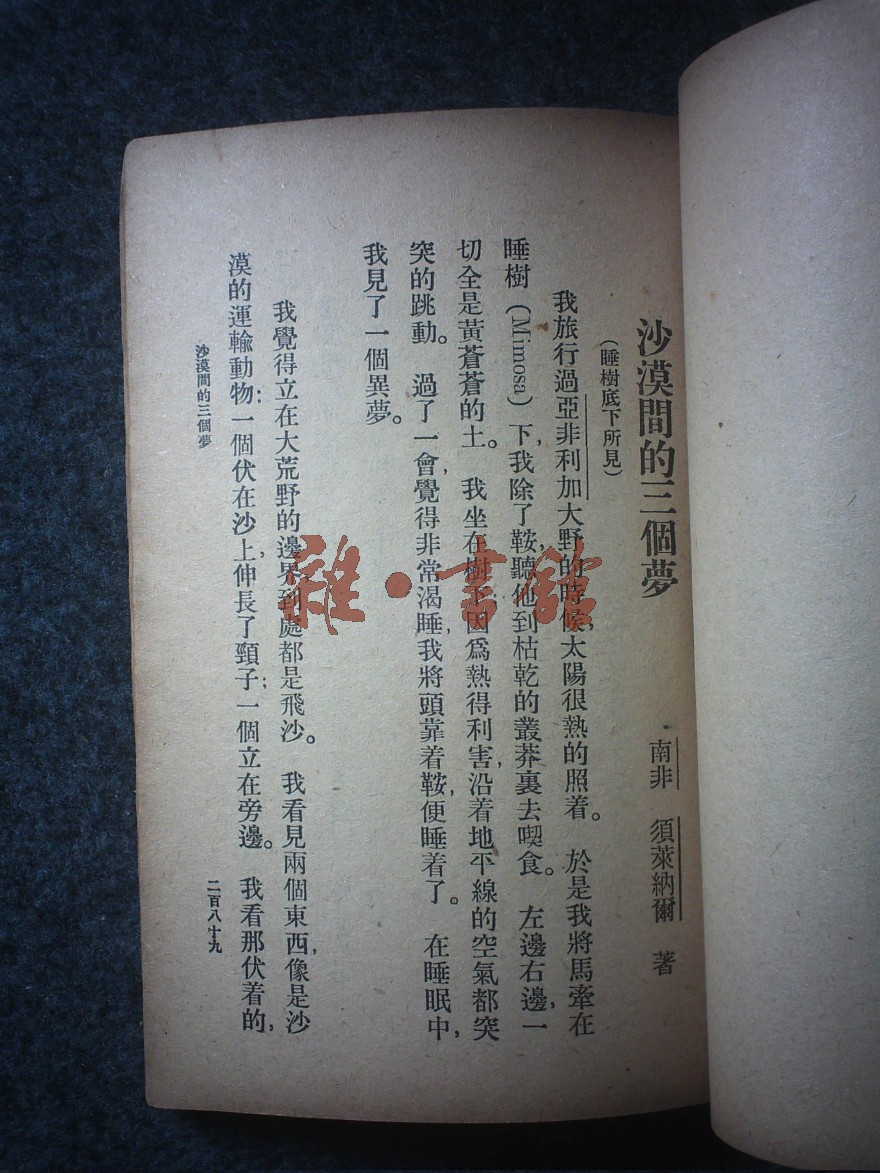 沙漠間的三個夢
南非　須萊納爾　著
（睡樹底下所見）
我旅行過亞非利加大野的時候，太陽很熱的照着。　於是我將馬牽在
睡樹（Mimosa）下，我除了鞍，聽他到枯乾的叢莽裏去喫食。　左邊右邊，一
切全是黃蒼蒼的土。　我坐在樹下，因爲熱得利害，沿着地平線的空氣都突
突的跳動。　過了一會，覺得非常渴睡，我將頭靠着鞍，便睡着了。　在睡眠中，
我見了一個異夢。
我覺得立在大荒野的邊界，到處都是飛沙。　我看見兩個東西，像是沙
漠的運輸動物：一個伏在沙上，伸長了頸子；一個立在旁邊。　我看那伏着的，
沙漠間的三個夢
二百八十九
雜·書館